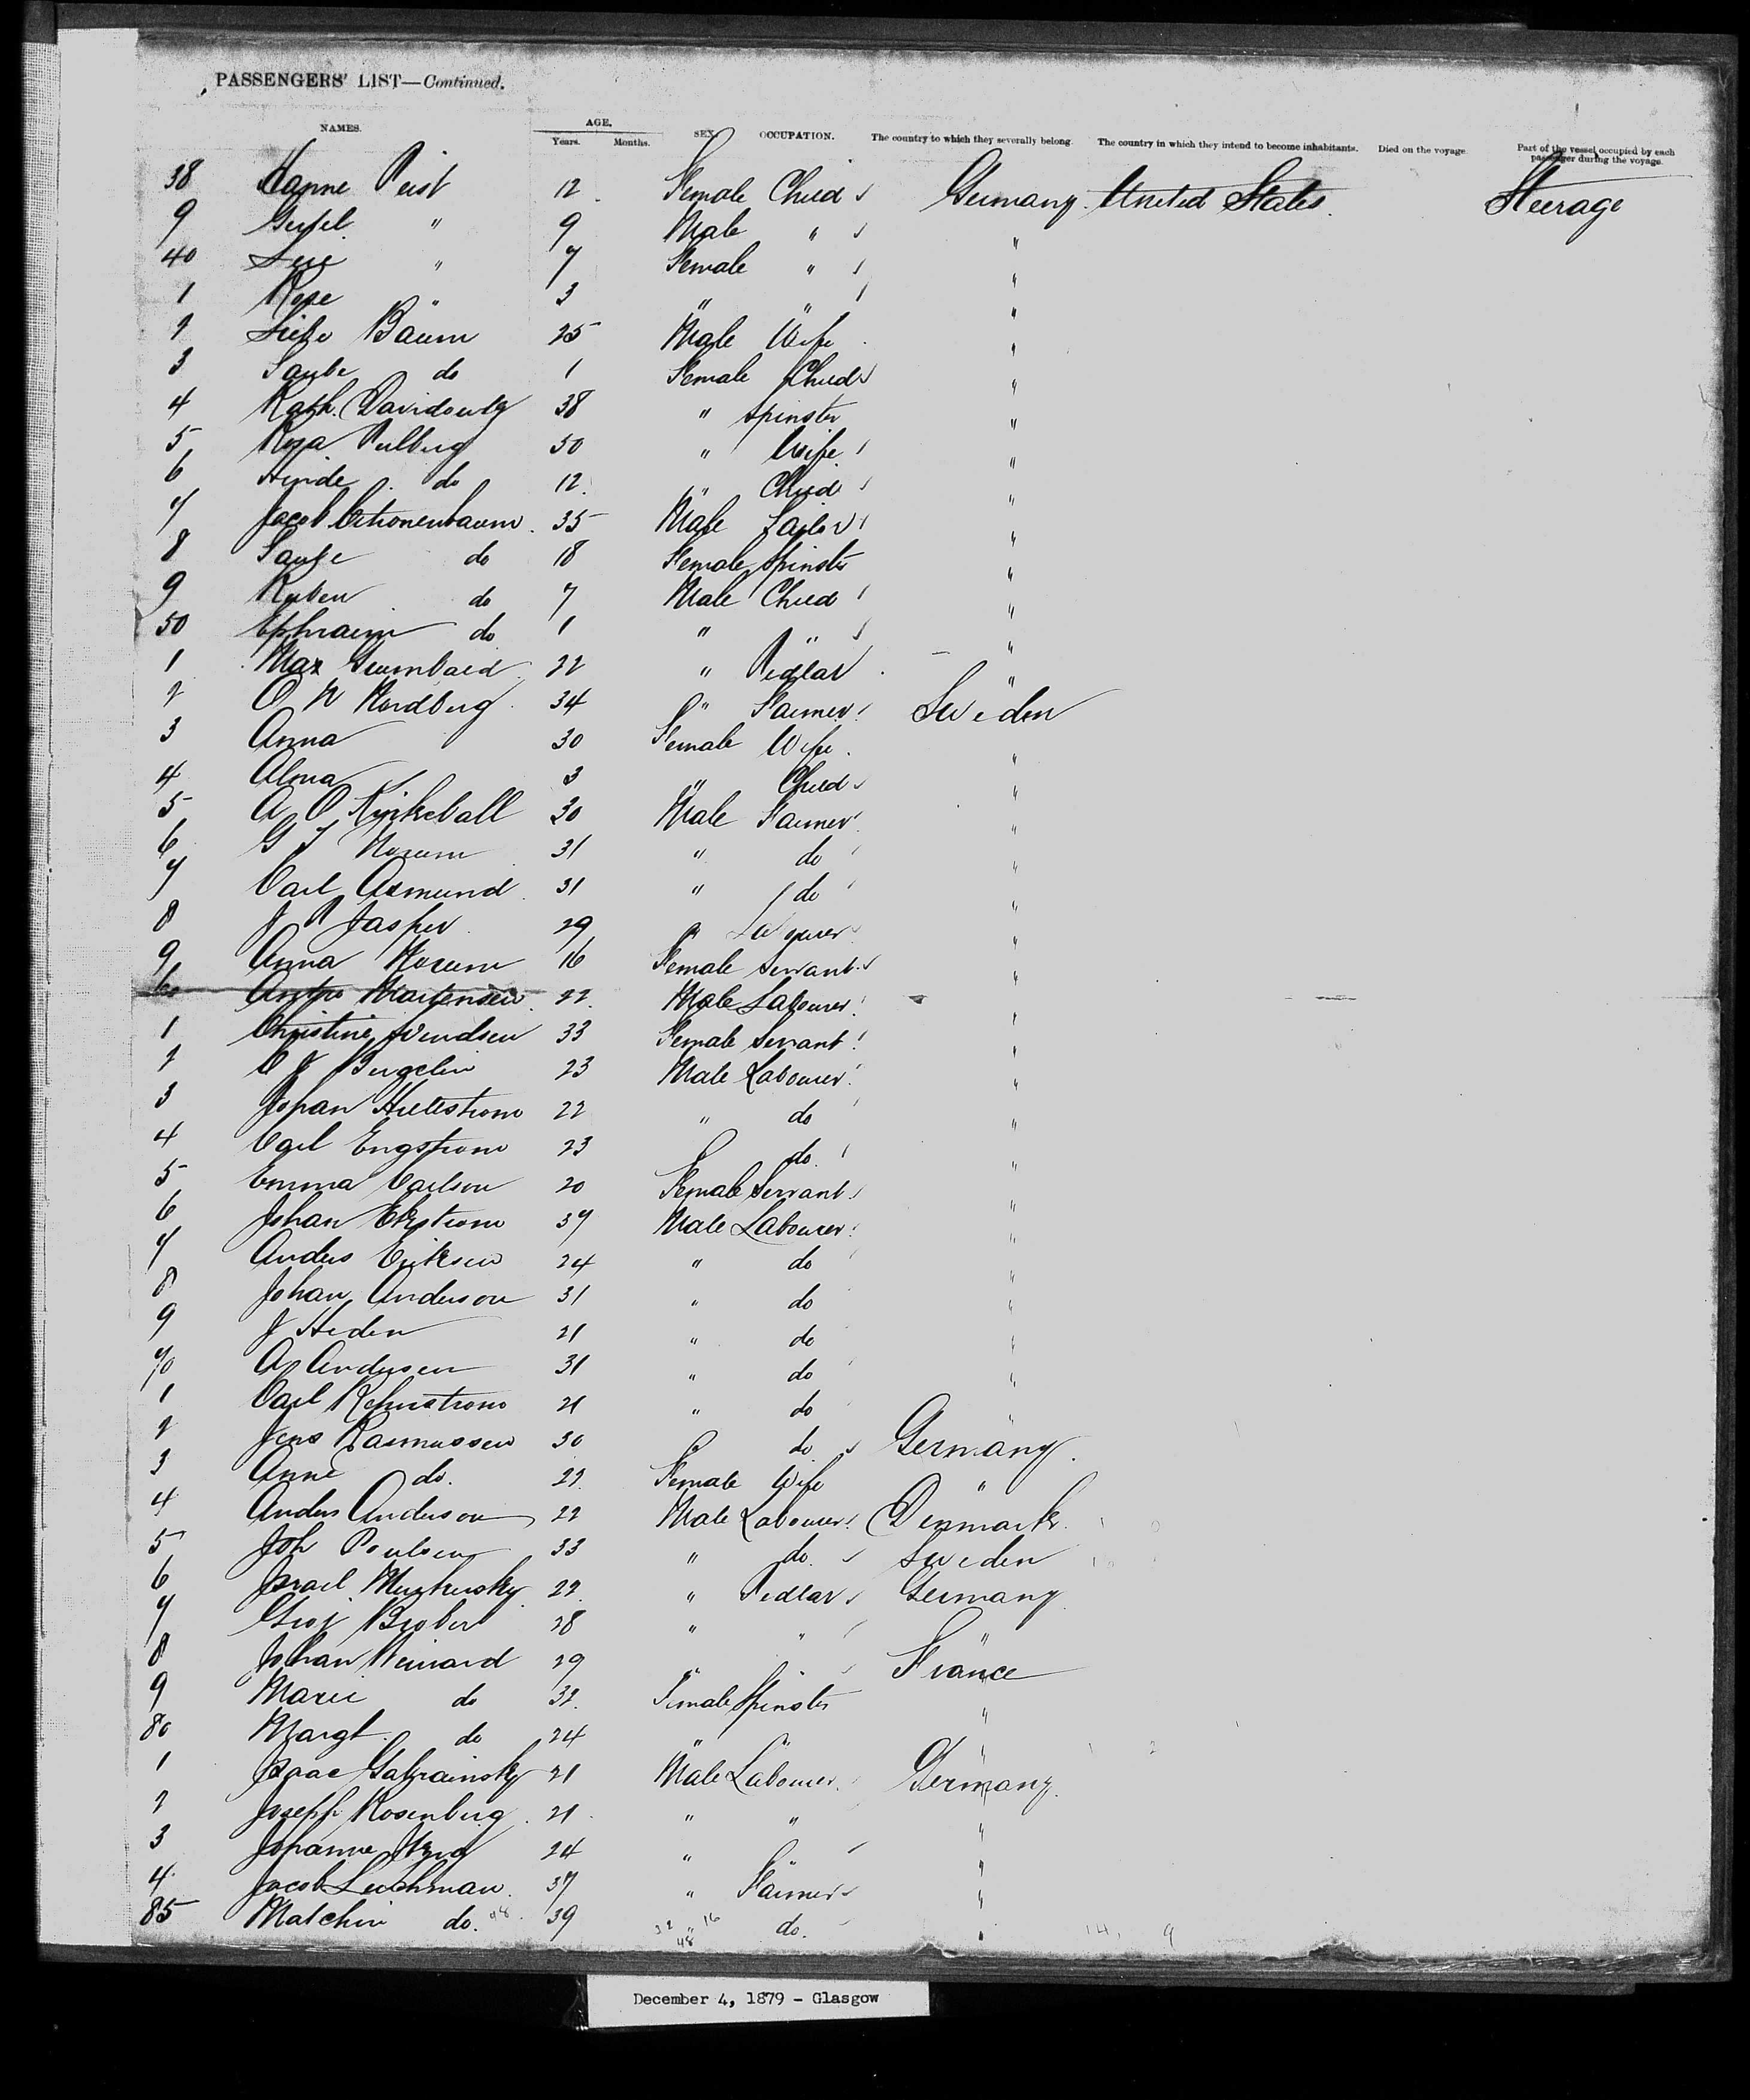 PASSENGERS' LIST—Continued.
NAMES. AGE. Years. Months. SEX. OCCUPATION. The country to which they severally belong. The country in which they intend to become inhabitants. Died on the voyage. Part of the vessel occupied by each passenger during the voyage.
38 Hanne Peist 12 Female Child Germany. United States. Steerage
9 " 9 Male " "
40 " 7 Female " "
1 Rose " 3 " " "
2 Baum 25 Male Wife "
3 Taube do 1 Female Child "
4 38 " Spinster "
5 Rosa 50 " Wife "
6 Hinde do 12 " Child "
7 Jacob 35 Male Tailor "
8 do 18 Female Spinster "
9 Ruben do 7 Male Child "
50 Ephraim do 1 " " "
1 Max 22 " Pedlar "
2 O N Nordberg 34 " Farmer Sweden
3 Anna 30 Female Wife "
4 Alma 3 " Child "
5 A O 30 Male Farmer "
6 G J Norum 31 " do "
7 Carl Asmund 31 " do "
8 J P Jasper 29 " Labourer "
9 Anna Norum 16 Female Servant "
60 Martensen 22 Male Labourer "
1 Christine Svendsen 33 Female Servant "
2 C J Bergelin 23 Male Labourer "
3 Johan 22 " do "
4 Carl Engstrom 23 do "
5 Emma Carlson 20 Female Servant "
6 Johan Ekstrom 37 Male Labourer "
7 Anders Eriksen 24 " do "
8 Johan Anderson 31 " do "
9 J Heden 21 " do "
70 A Andersen 31 " do "
1 Carl 21 " do "
2 Jens Rasmussen 30 " do Germany.
3 Anne do. 22 Female Wife "
4 Anders Anderson 22 Male Labourer Denmark.
5 Joh Poulsen 33 " do. Sweden
6 Israel 22 " Pedlar Germany
7 28 " " "
8 Johan Weinard 29 " " France
9 Marie do 32 Female Spinster "
80 Margt. do 24 " "
1 Isaac 21 Male Labourer Germany.
2 Joseph Rosenberg 21 " " "
3 Johanne 24 " " "
4 Jacob Leichman 37 " Farmer "
85 Malchin do. 48 39 " do. "
32 16
48
14. 9
December 4, 1879 - Glasgow